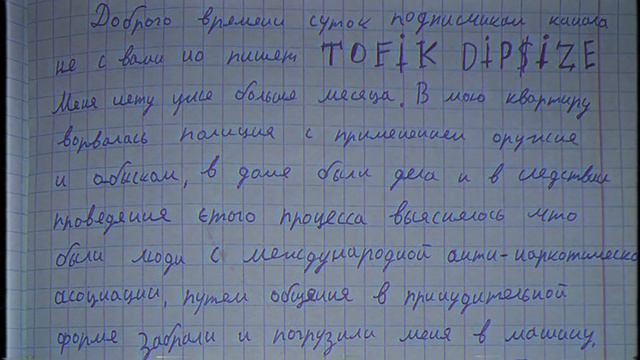 Доброго времени суток подписчикам канала
не с вами но пишет TOFİK DİP$İZE
Меня нету уже больше месяца. В мою квартиру
ворвалась полиция с применением оружие
и обыском, в доме были дела и в следствии
проведения етого процесса выяснялось что
были люди с международной анти-наркотическо
асоциации, путем общения в принудительной
форме забрали и погрузили меня в машину.